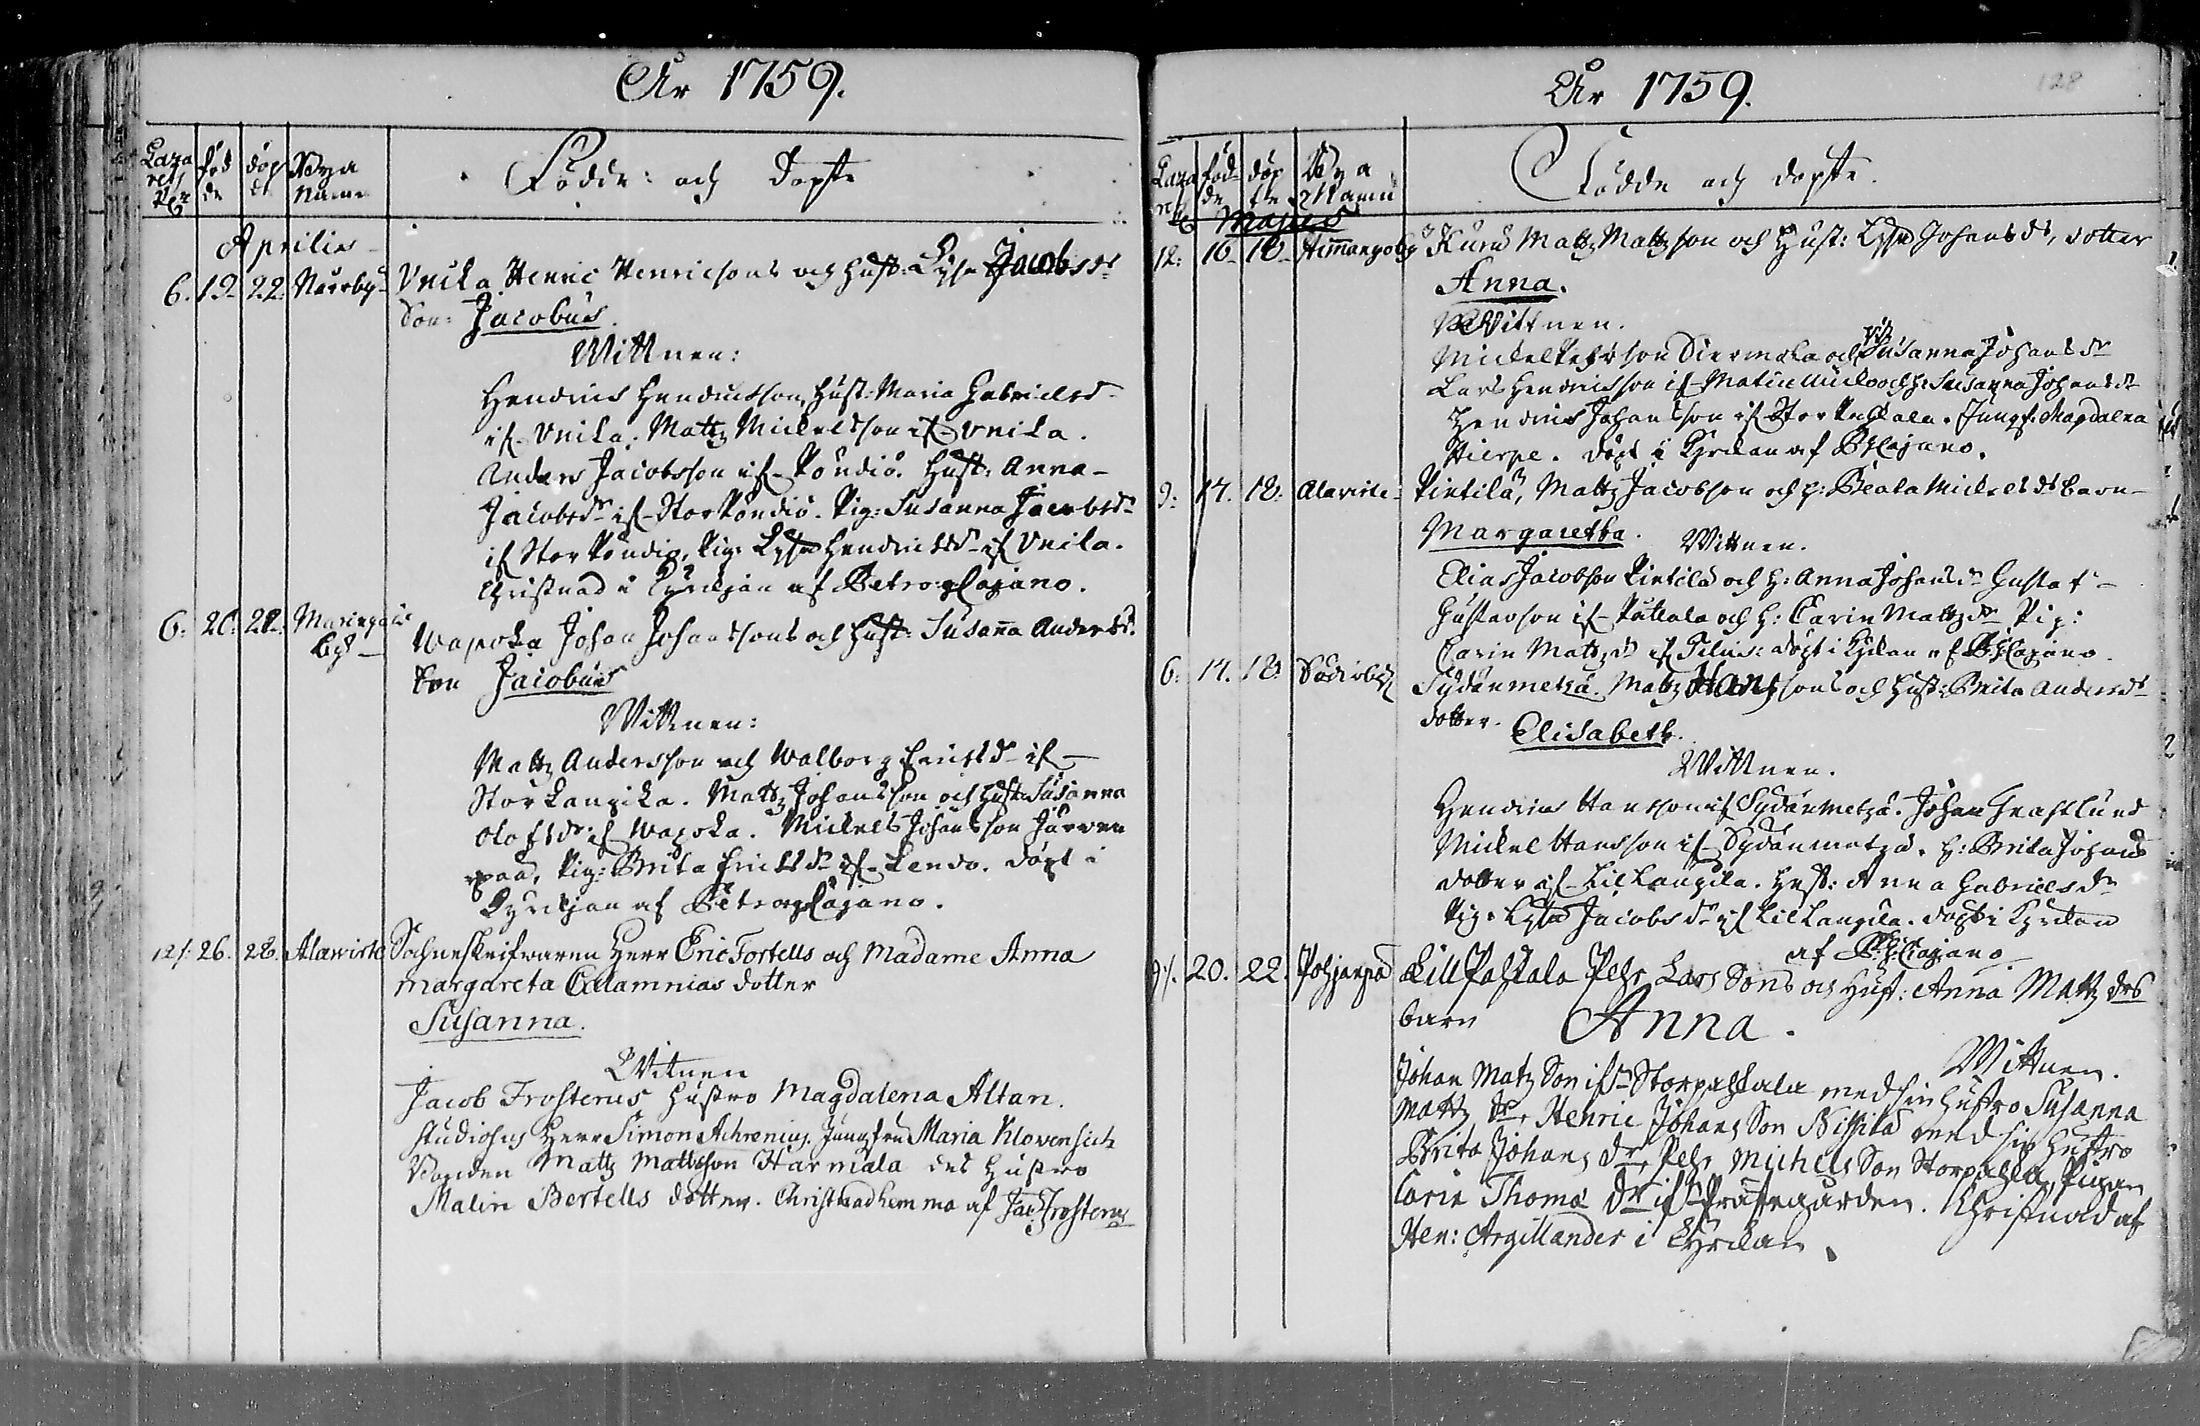 År 1759.
Laza
rets
född
de
döp
te
Bya
Namn
Födde: och Döpte
Aprilis
6. 19. 22. Norrby Unika Henric Henricsons och Hust: Lisa Jacobsdr
Son: Jacobus.
Wittnen:
Hendrich Hendricsson, Hust: Maria Gabrielsd
if. Unika. Mattz Mickelsson if Unika.
Anders Jacobsson if Röndiö. Hust: Anna
Jacobsdr if Stor Röndiö. Pig: Susanna Jacobsdr
if Stor Röndiö, Pig: Lisa Hendricsdr if Unika.
Christnad i Kyrkjan af Petro Cajano.
6: 20: 22. Maringais
by Wapoka Johan Johanssons och Hust: Susanna Andersdr
Son Jacobus
Wittnen:
Mattz Andersson och Walborg Ericsdr if
Storkangika. Mattz Johansson och Hust: Susanna
Olofsdr if Wapoka. Mickels Johansson Järven
paa, Pig: Brita Ericsdr if Lendo. döpt i
Kyrkjan af Petro Cajano.
12/: 26. 28. Alawirte Sochneskrifwaren Herr Eric Fortells och Madame Anna
Margareta Calamnias dotter
Susanna.
Witnen
Jacob Frosterus hustro Magdalena Altan.
studiosus Herr Simon Achrenius. Jungfru Maria Klovensich
Bonden Mattz Mattsson Harmala des hustro
Malin Bertells dotter. Christnad hemma af Jac: Frosterus
År 1759.
128
Laza
rets
föd
de
döp
te
Bya
Namn
Födde och döpte.
Majus
12: 16. 18. Himangoby Kunus Mattz Mattzson och Hust: Lisa Johansdr, dotter
Anna.
Wittnen.
Mickel Pehrson Siermala och Susanna Johansdr
Lars Hendricsson if och h: Susanna Johansdr
Hendrich Johansson if Stor Pahkala. Jungf: Magdalena
Hierpe. döpt i Kyrkan af P: Cajano.
9: 17. 18. Alawirte Pintilä, Mattz Jacobson och h: Beata Mickelsdr barn
Margaretha. Wittnen.
Elias Jacobson Pintilä och h: Anna Johansdr Gustaf
Gustavson if Puttala och h: Carin Mattzdr Pig:
Carin Mattzdr if Filus: döpt i Kyrkan af P: Cajano.
6: 17. 18. Södiöby Sydänmetzä. Mattz Hanssons och Hust: Brita Andersdr
dotter. Elisabeth.
Wittnen.
Hendrich Hansson if Sydänmetzä. Johan Graftlund
Mickel Hansson if Sydänmetzä. h: Brita Johans
dotter if Lillangila. Hust: Anna Gabrielsdr
Pig: Lisa Jacobsdr if Lillangila. döpt i Kyrkan
af P: Cajano
9/. 20. 22. Pohjanpä Lill Pahkala Pehr Lars Sons och Hust: Anna Mattz drs
barn Anna.
Wittnen.
Johan Matz Son ifr Storpahkala med sin hustro Susanna
Mattz dr, Henric Johans Son Nissilä med sin hustro
Brita Johans dr, Pehr Michels Son Storpahkala, Pigan
Carin Thomæ dr ifr Prästegården. Christnad af
Hen: Argillander i Kyrckan.